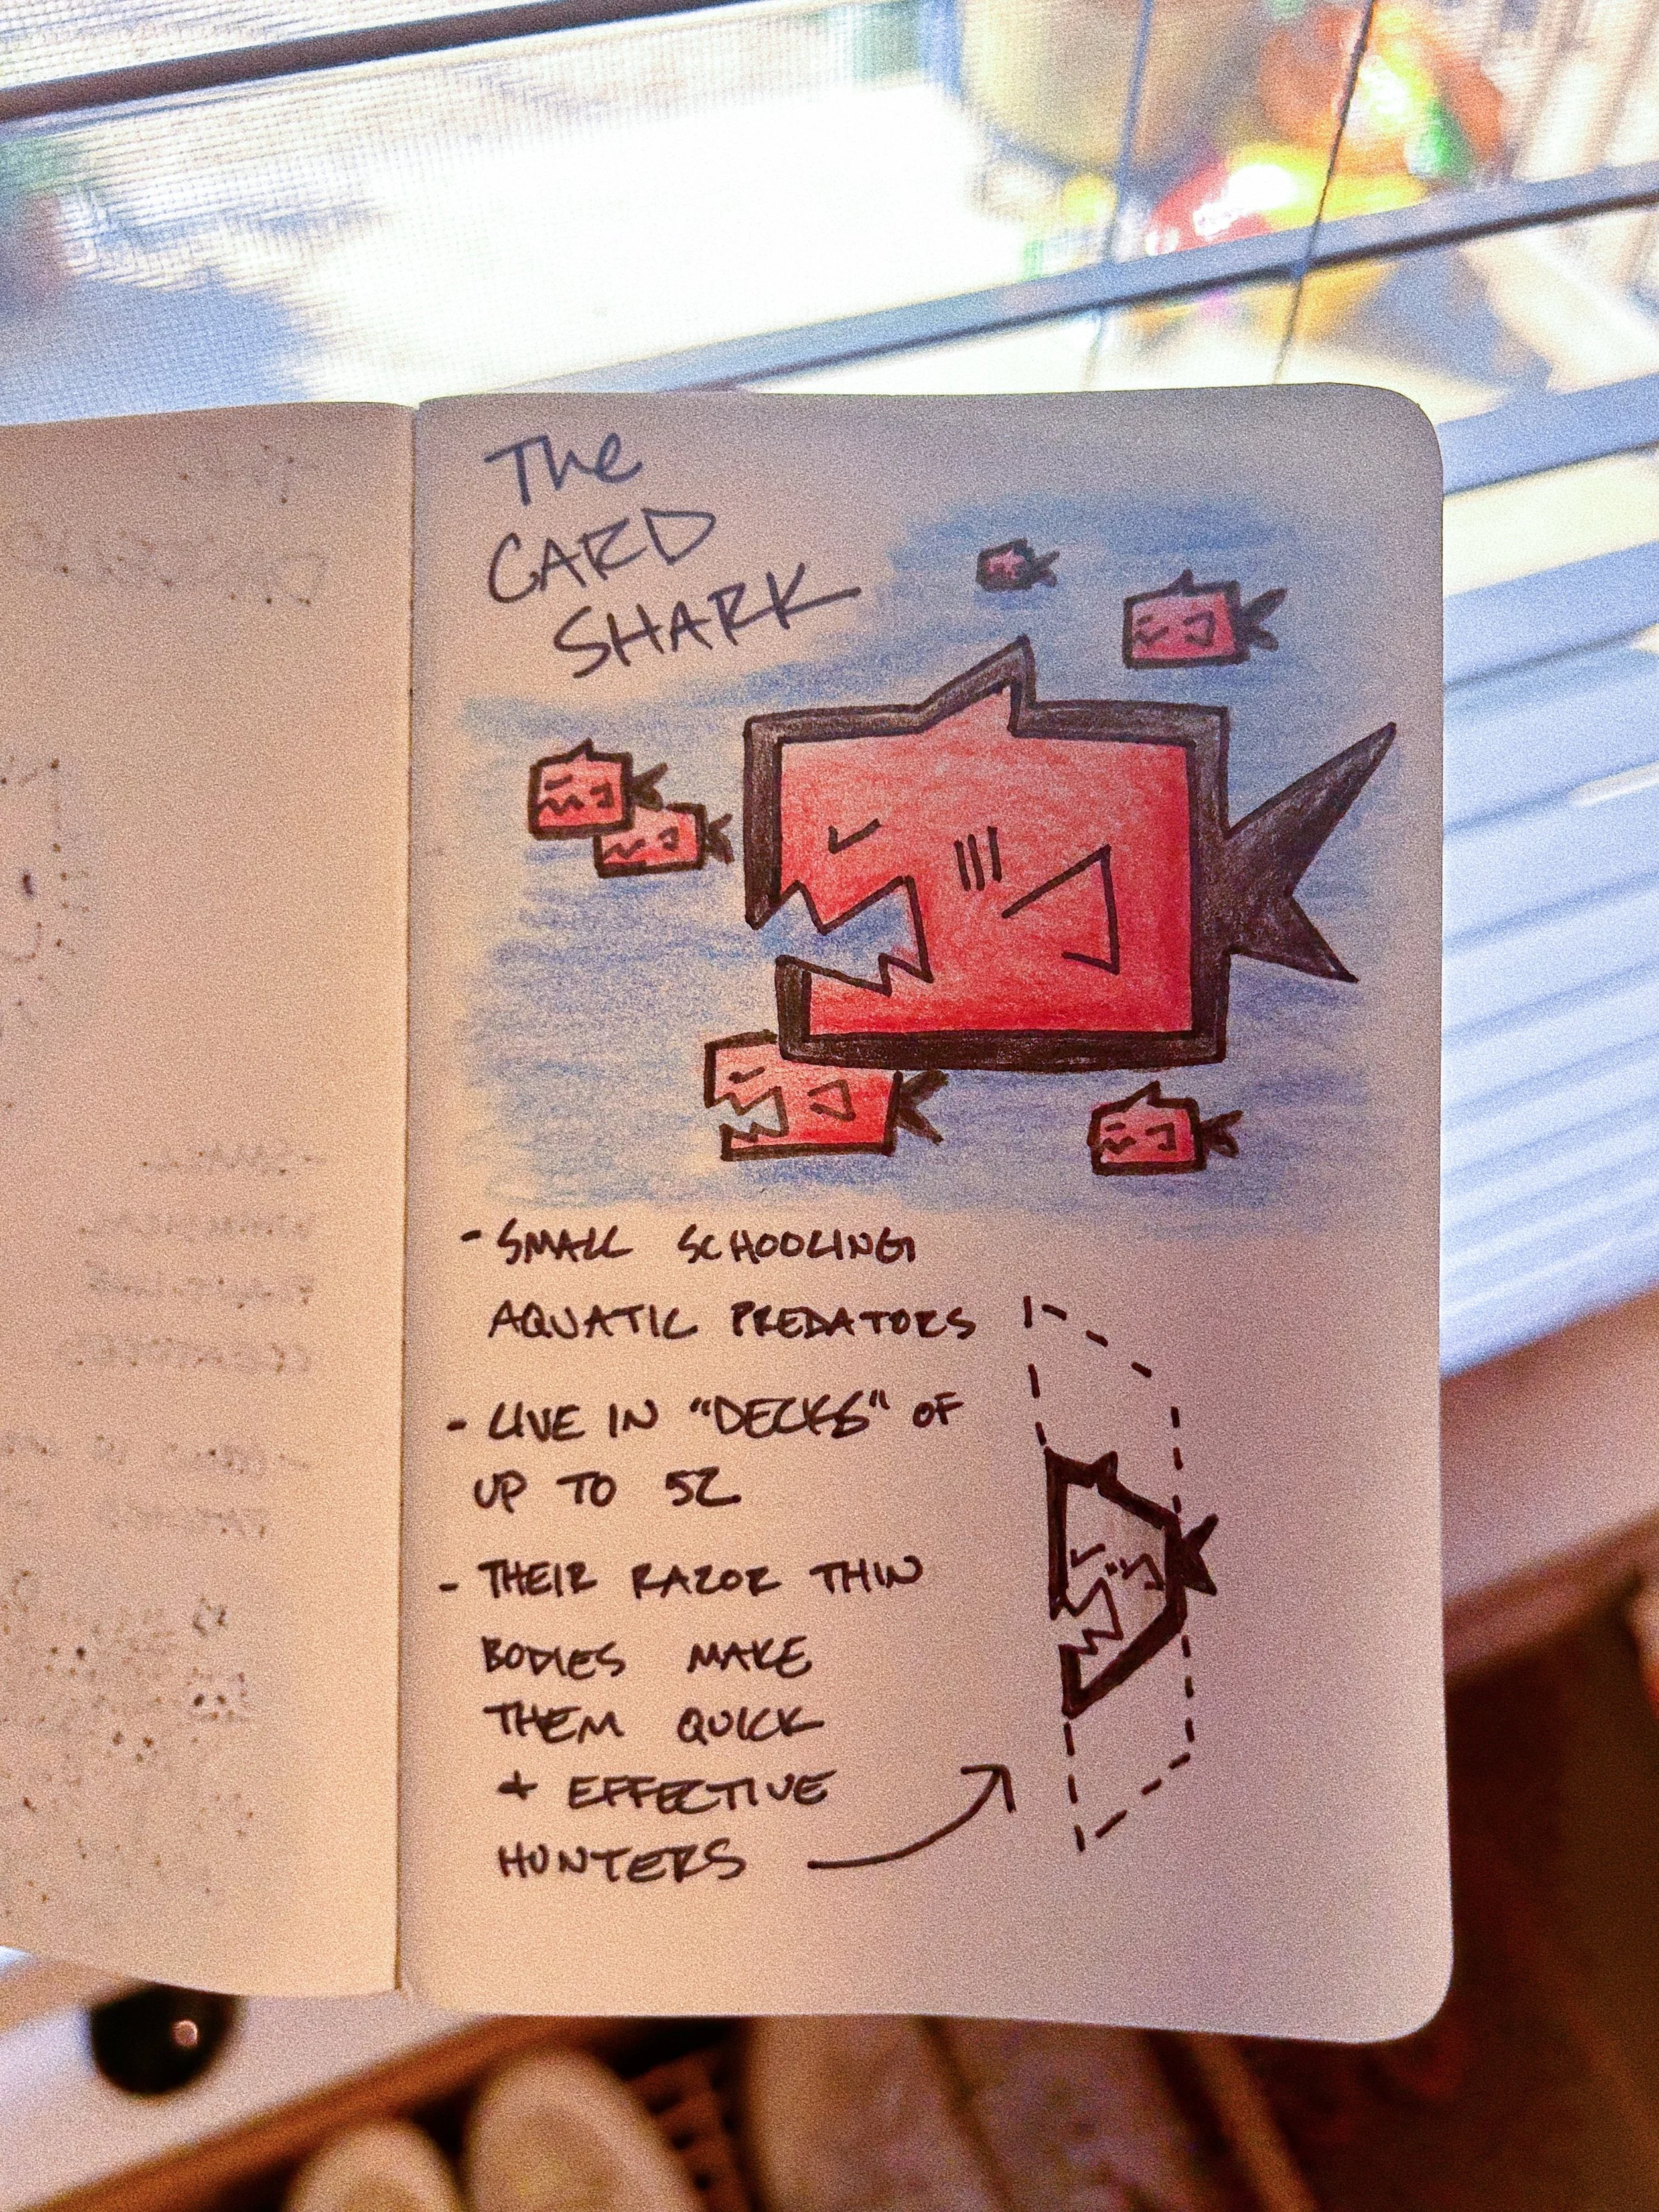 The
CARD
SHARK
- SMALL SCHOOLING
AQUATIC PREDATORS
- LIVE IN "DECKS" OF
UP TO 52
- THEIR RAZOR THIN
BODIES MAKE
THEM QUICK
+ EFFECTIVE
HUNTERS